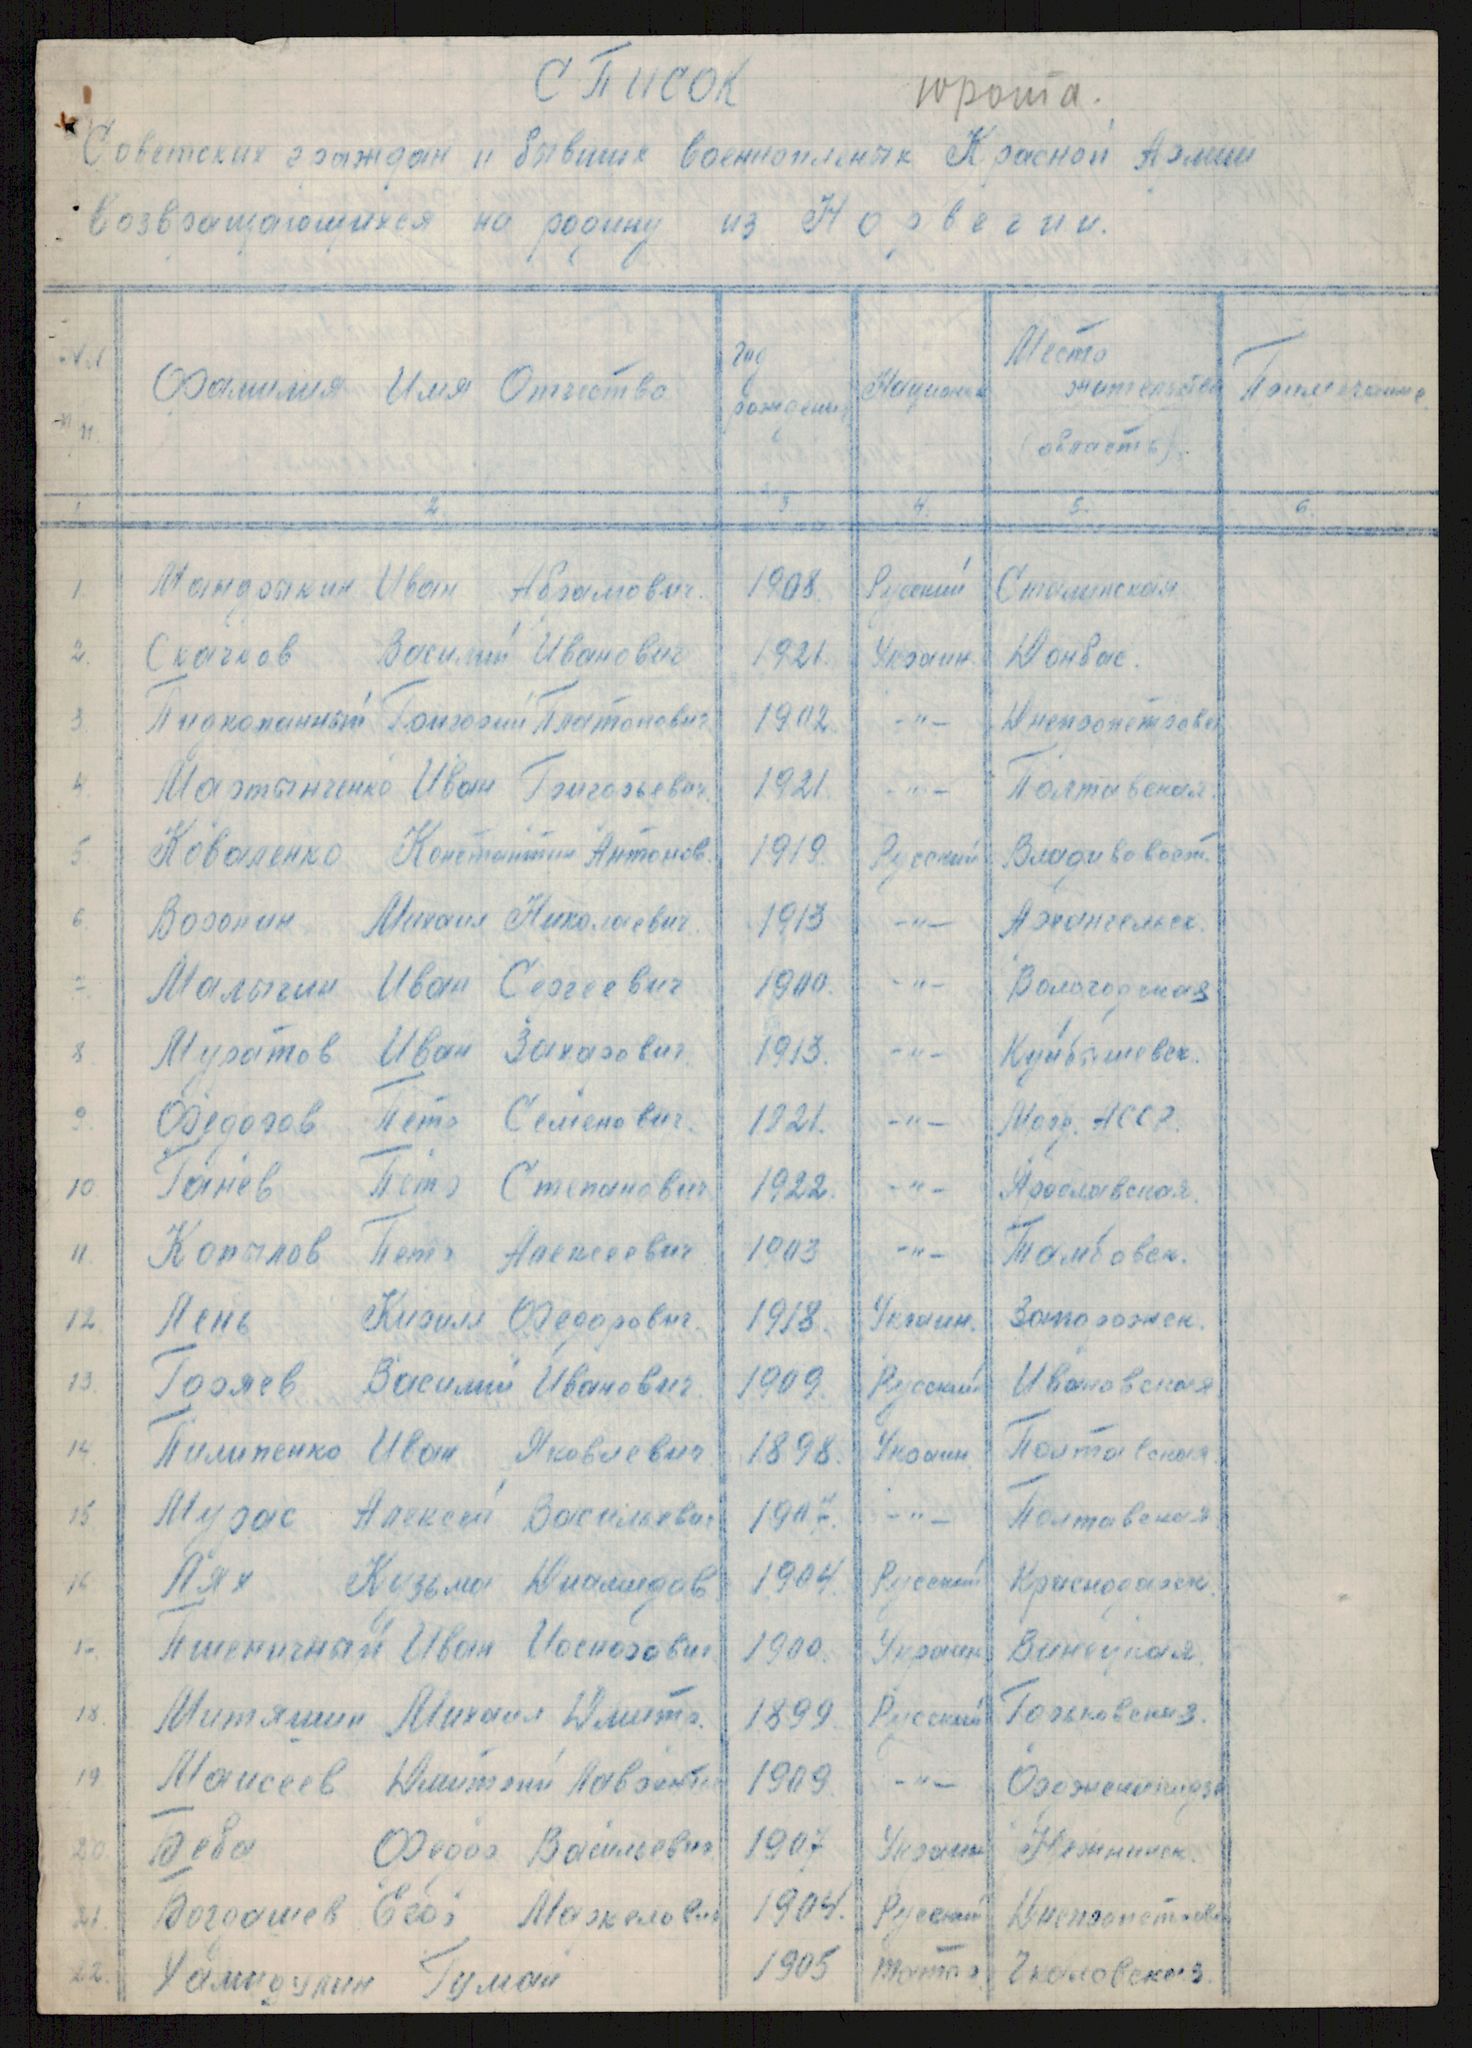 СПИСОК юрота.
Советских граждан и бывших военнопленых Красной Армии
возвращающихся на родину из Норвегии.
№№ п п. Фамилия Имя Отчество Год рождения Национал Место жительства (область). Примечание.
1 2. 3 4. 5. 6.
1 Мандрыкин Иван Абрамович. 1908. Русский Сталинская
2. Скачков Василий Иванович 1921. Украин. Донбас.
3 Пидкопанный Григорий Платонович 1902 -"- Днепропетровск
4 Мартынченко Иван Григорьевич. 1921. -"- Полтавская.
5 Коваленко Константин Антонов. 1919. Русский Владивовост.
6 Воронин Михаил Николаевич. 1913 -"- Архангельск.
7 Малыгин Иван Сергеевич 1900. -"- Вологодская
8 Муратов Иван Захарович. 1913. -"- Куйбышевск.
9. Федоров Петр Семенович. 1921. -"- Морд. АССР.
10 Ганев Петр Степанович 1922. -"- Ярославская.
11. Копылов Петр Алексеевич 1903 -"- Тамбовск.
12. Лень Кирилл Федорович. 1918. Украин. Запорожск.
13. Горяев Василий Иванович 1909. Русский Ивановская
14. Пилипенко Иван Яковлевич 1898. Украин. Полтавская
15 Мурас Алексей Васильевич 1907. -"- Полтавская
16 Лях Кузьма Диамидов. 1904. Русский Краснодарск.
17 Пшеничный Иван Иоспорович 1900. Украин. Винецкая.
18. Митяшин Михаил Дмитр. 1899. Русский Горьковская.
19 Маисеев Дмитрий Лаврентьи 1909. -"- Орджоникидзе
20 Беба Федор Васильевич 1907 Украин Нежинск.
21. Богдашев Егор Маркелович 1904. Русский Днепропетровс
22. Хамидулин Гумай 1905 татар Чкаловская.